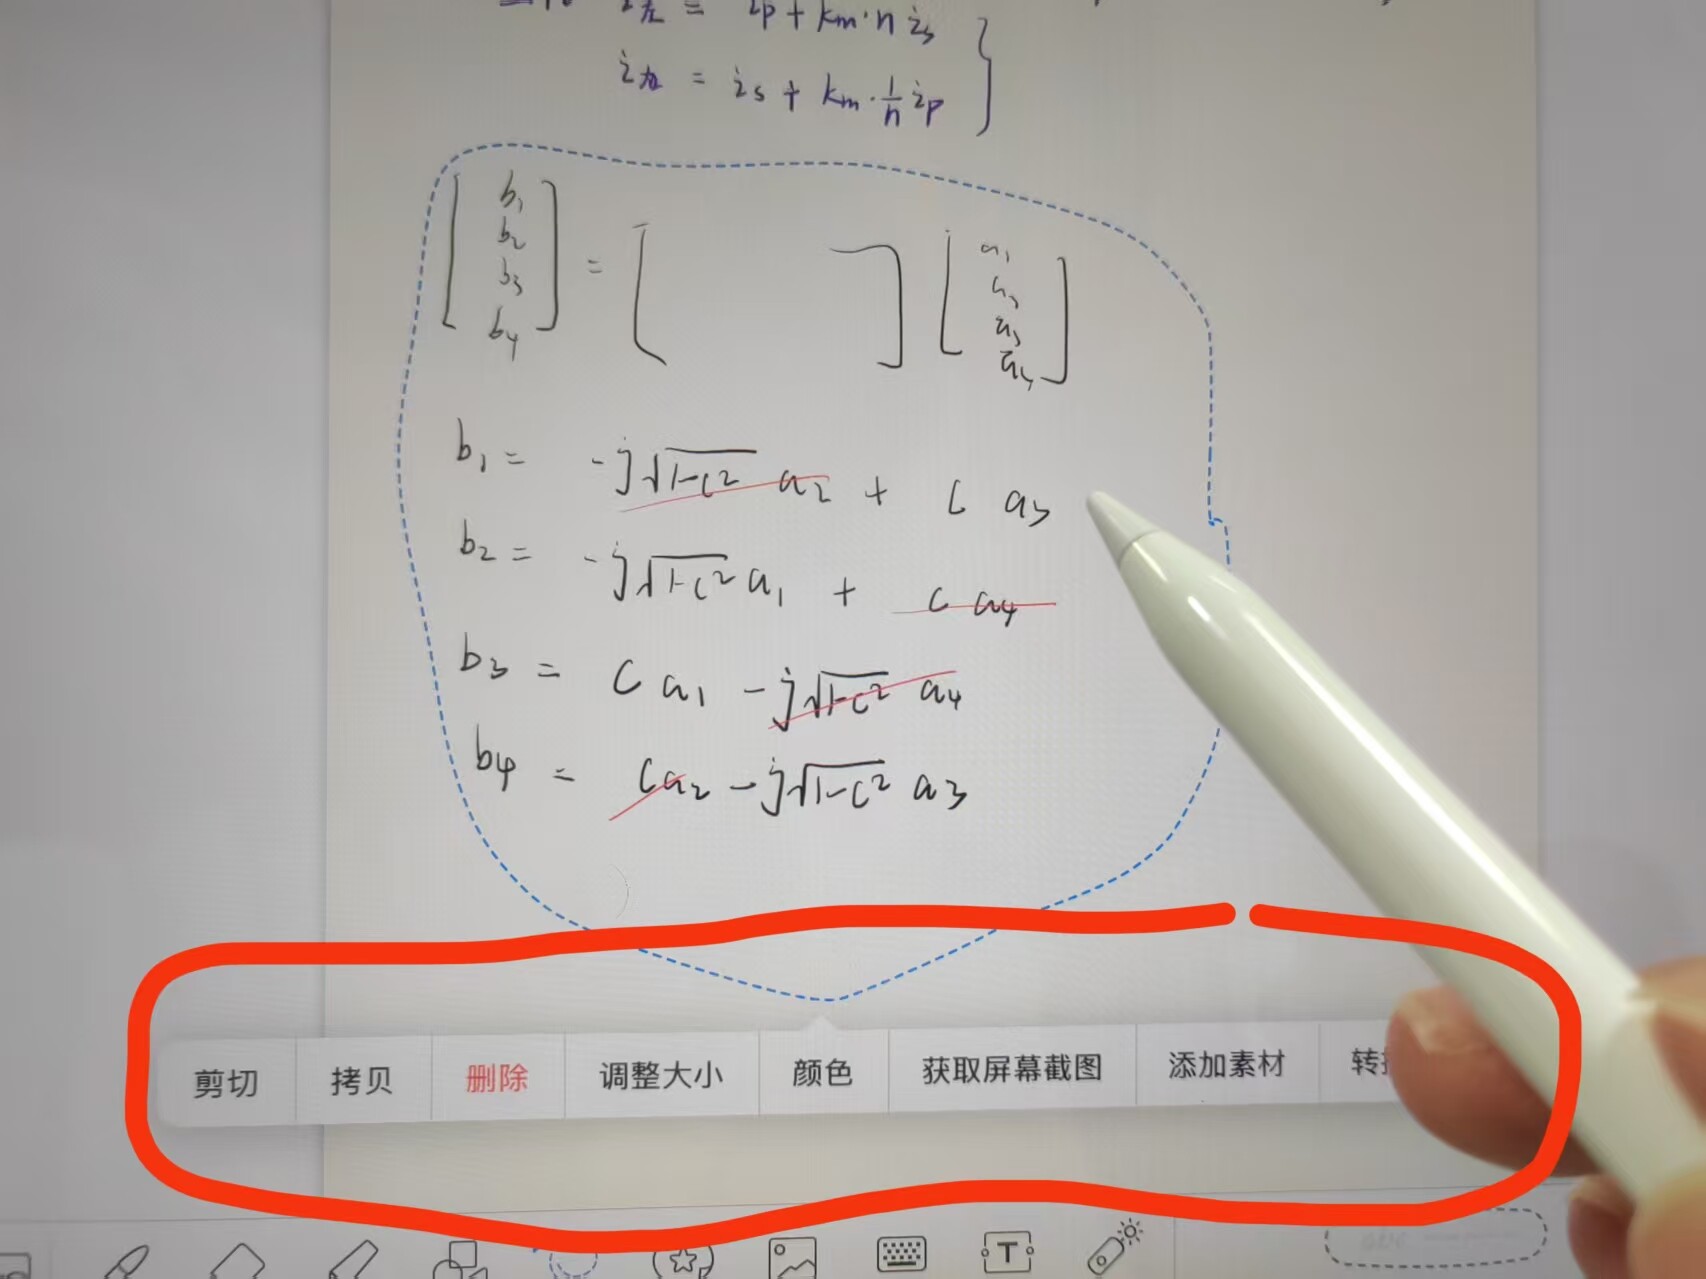 i左 = ip + km·n is
i右 = is + km·1/n ip
[b1 b2 b3 b4] = [ ] [a1 a2 a3 a4]
b1 = -j√1-c² a2 + c a3
b2 = -j√1-c² a1 + c a4
b3 = c a1 - j√1-c² a4
b4 = c a2 - j√1-c² a3
剪切 拷贝 删除 调整大小 颜色 获取屏幕截图 添加素材 转
T